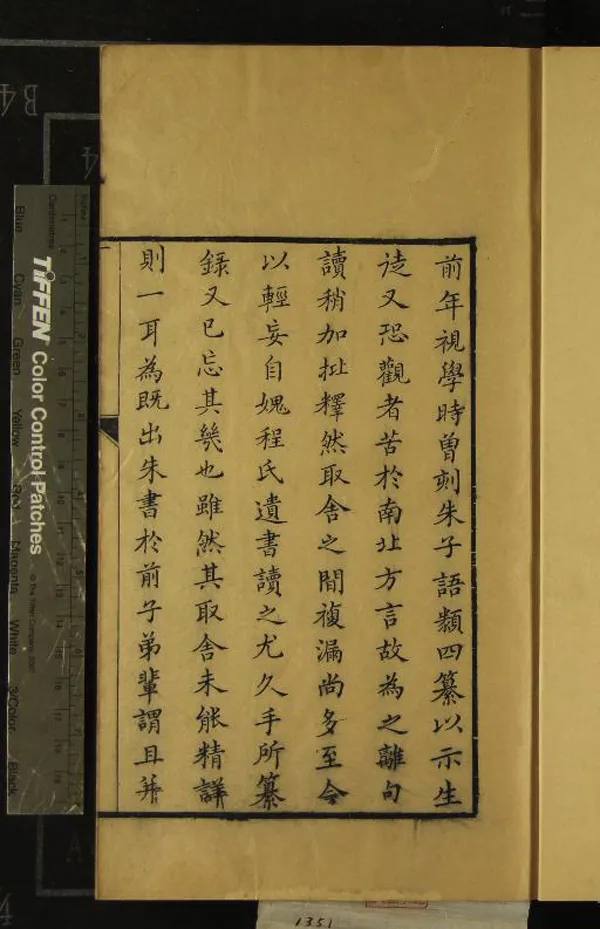 前年視學時曾刻朱子語類四纂以示生
徒又恐觀者苦於南北方言故為之離句
讀稍加批釋然取舍之間複漏尚多至今
以輕妄自媿程氏遺書讀之尤久手所纂
錄又已忘其幾也雖然其取舍未能精詳
則一耳為既出朱書於前子弟輩謂且并
TIFFEN Color Control Patches
© The Tiffen Company, 2007
Centimetres
Inches
Blue
Cyan
Green
Yellow
Red
Magenta
White
3/Color
Black
B4
A
1351